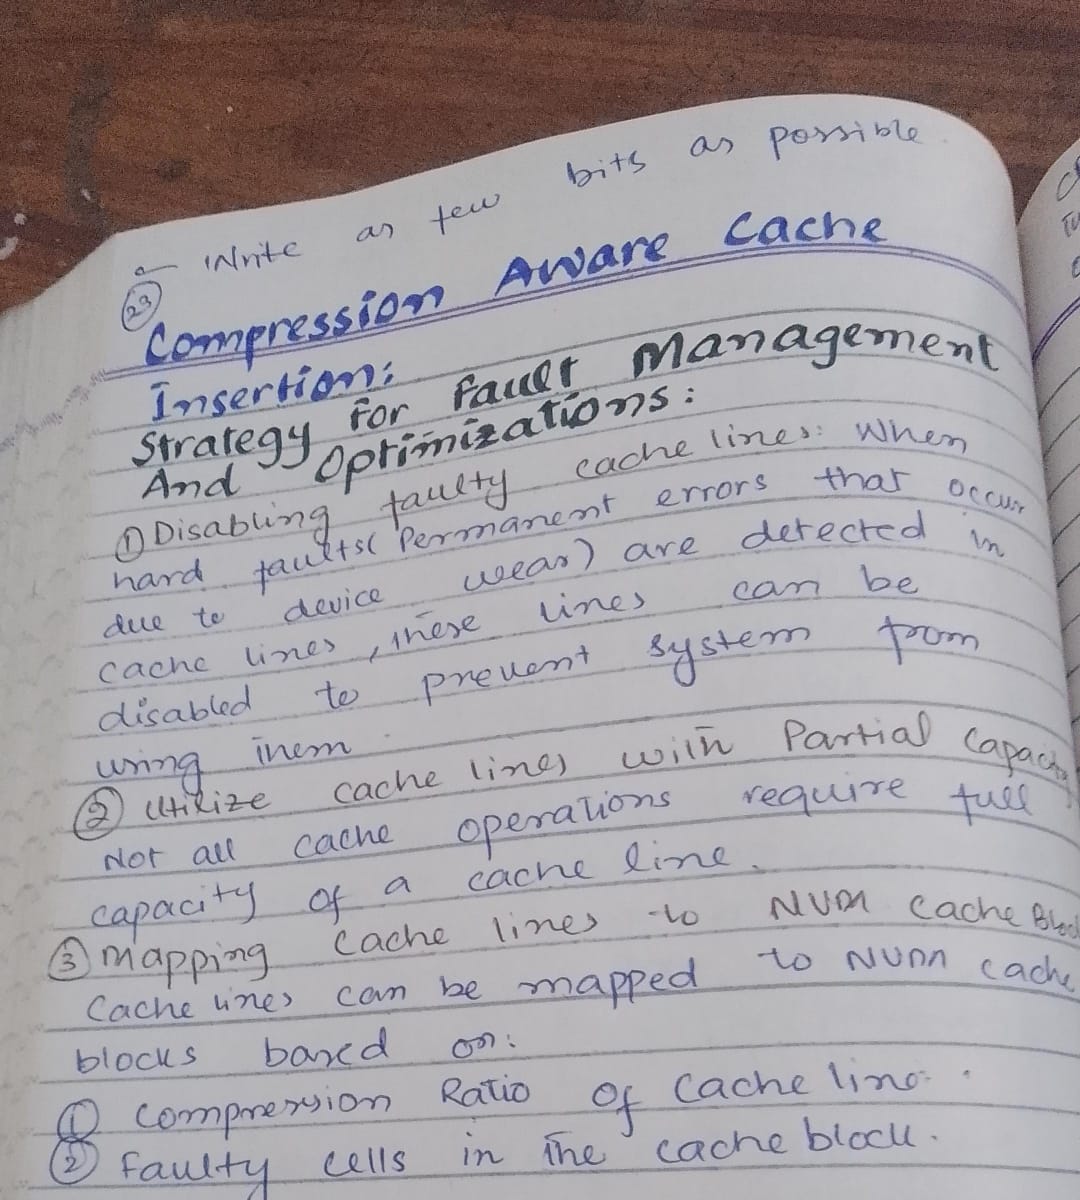 - Write as few bits as possible
23
Compression Aware Cache
Insertion:
Strategy for Fault Management
And Optimizations:
① Disabling faulty cache lines: When
hard faults( Permanent errors that occur
due to device wear) are detected in
cache lines, these lines can be
disabled to prevent system from
using them.
② Utilize cache lines with Partial Capac
Not all cache operations require full
capacity of a cache line.
③ Mapping cache lines to NVM Cache Bloc
Cache lines can be mapped to NVM cache
blocks based on:
① Compression Ratio of Cache line.
② Faulty cells in the cache block.